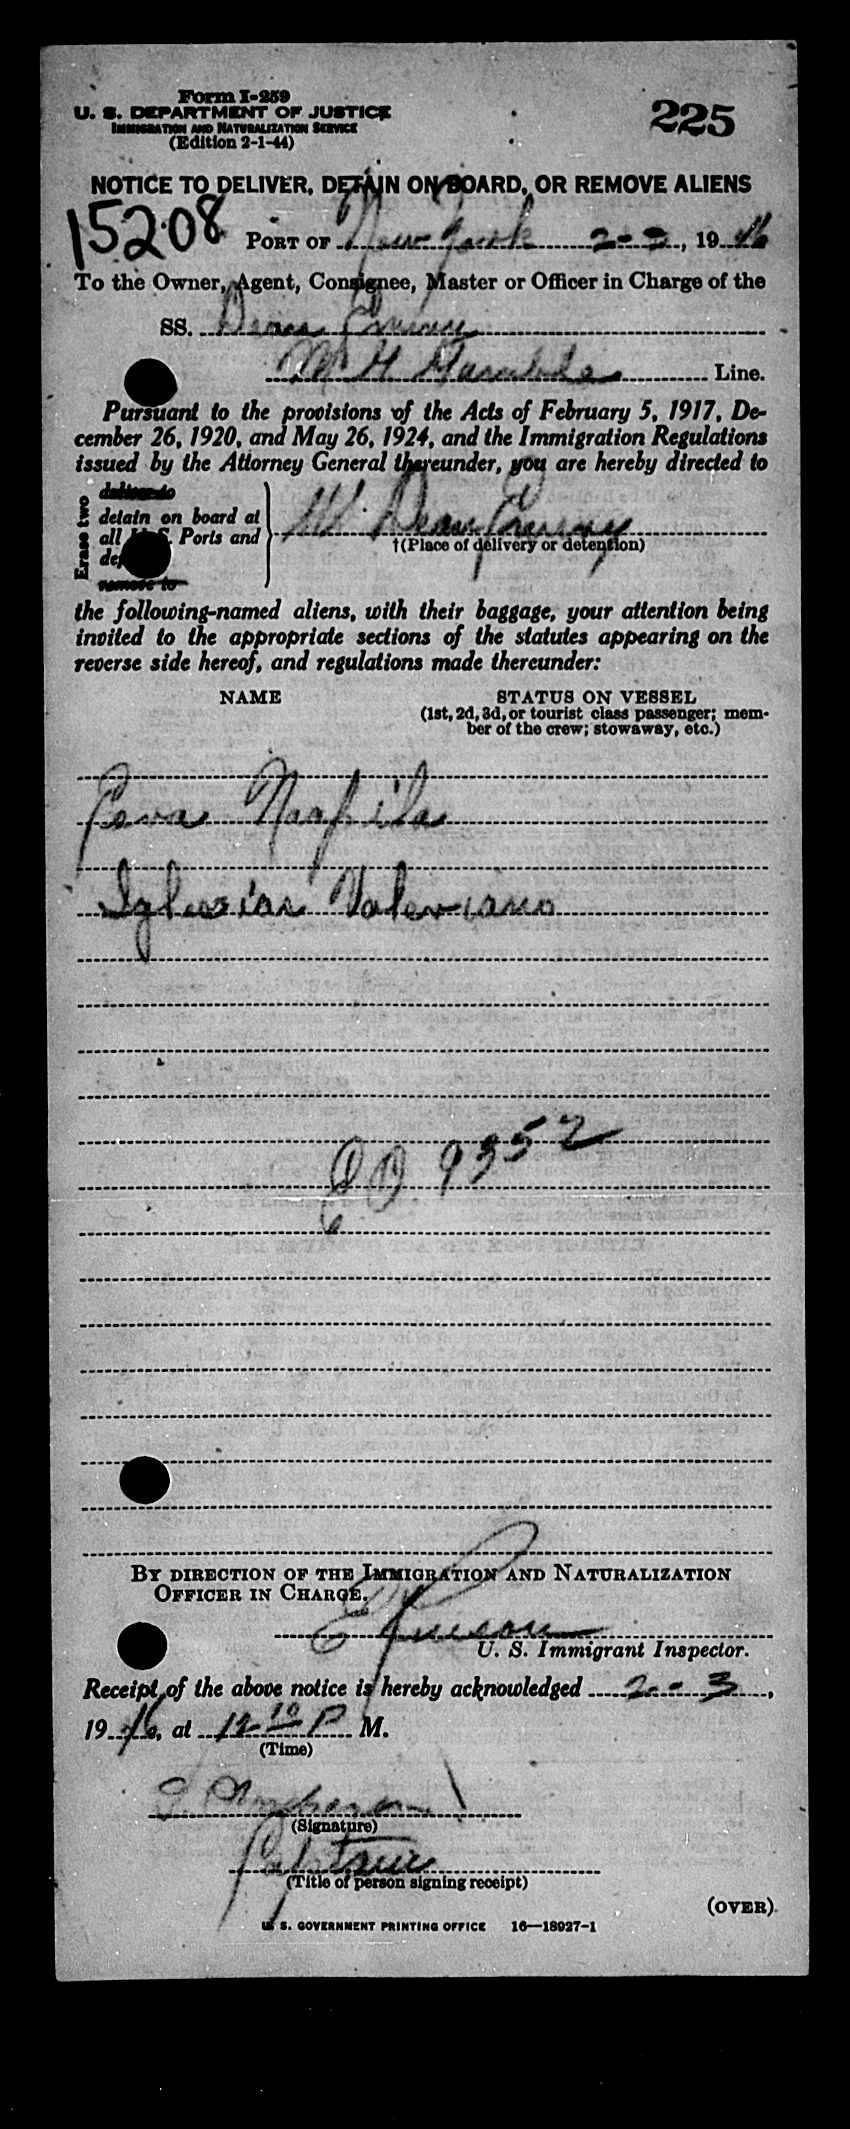 Form I-259
U. S. DEPARTMENT OF JUSTICE
IMMIGRATION AND NATURALIZATION SERVICE
(Edition 2-1-44)
225
NOTICE TO DELIVER, DETAIN ON BOARD, OR REMOVE ALIENS
15208
PORT OF New York 2-2, 1946
To the Owner, Agent, Consignee, Master or Officer in Charge of the
SS. Dean Emery
W H Line.
Pursuant to the provisions of the Acts of February 5, 1917, De-
cember 26, 1920, and May 26, 1924, and the Immigration Regulations
issued by the Attorney General thereunder, you are hereby directed to
Erase two
deliver to
detain on board at
all U. S. Ports and
remove to
Dean Emery
†(Place of delivery or detention)
the following-named aliens, with their baggage, your attention being
invited to the appropriate sections of the statutes appearing on the
reverse side hereof, and regulations made thereunder:
NAME STATUS ON VESSEL
(1st, 2d, 3d, or tourist class passenger; mem-
ber of the crew; stowaway, etc.)
Iglesias Valeriano
9352
BY DIRECTION OF THE IMMIGRATION AND NATURALIZATION
OFFICER IN CHARGE.
U. S. Immigrant Inspector.
Receipt of the above notice is hereby acknowledged 2-3,
1946, at 12 10 P M.
(Time)
(Signature)
Captain
(Title of person signing receipt)
(OVER)
U. S. GOVERNMENT PRINTING OFFICE 16—18927-1